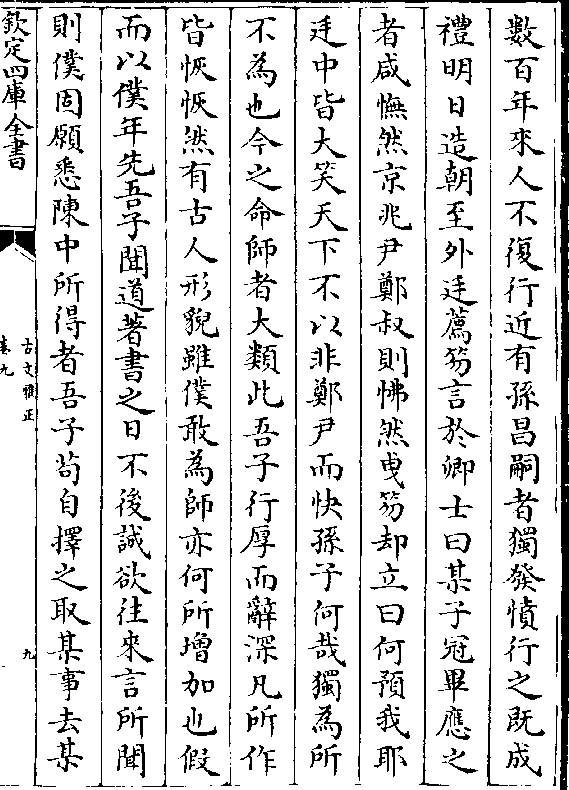 數百年來人不復行近有孫昌嗣者獨發憤行之既成
禮明日造朝至外廷薦笏言於卿士曰某子冠畢應之
者咸憮然京兆尹鄭叔則怫然曳笏却立曰何預我耶
廷中皆大笑天下不以非鄭尹而快孫子何哉獨為所
不為也今之命師者大類此吾子行厚而辭深凡所作
皆恢恢然有古人形貌雖僕敢為師亦何所增加也假
而以僕年先吾子聞道著書之日不後誠欲往來言所聞
則僕固願悉陳中所得者吾子苟自擇之取某事去某
欽定四庫全書
古文雅正
卷九
九